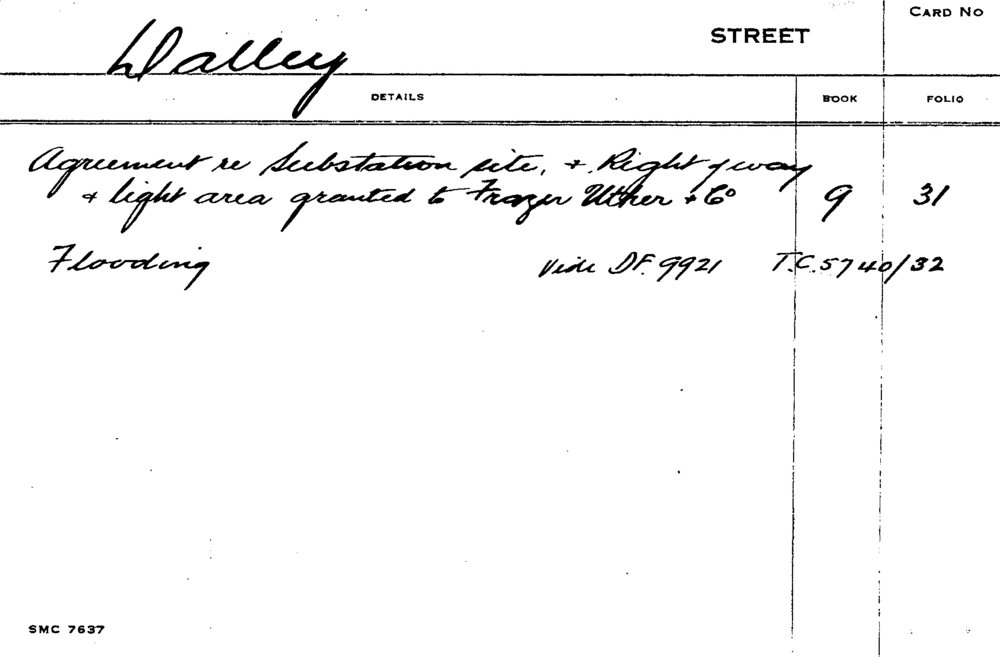 CARD NO
Dalley STREET
DETAILS BOOK FOLIO
Agreement re Substation site, + Right of way
+ light area granted to Frazer Uther + Co 9 31
Flooding Vide DF. 9921 T.C. 5740/32
SMC 7637